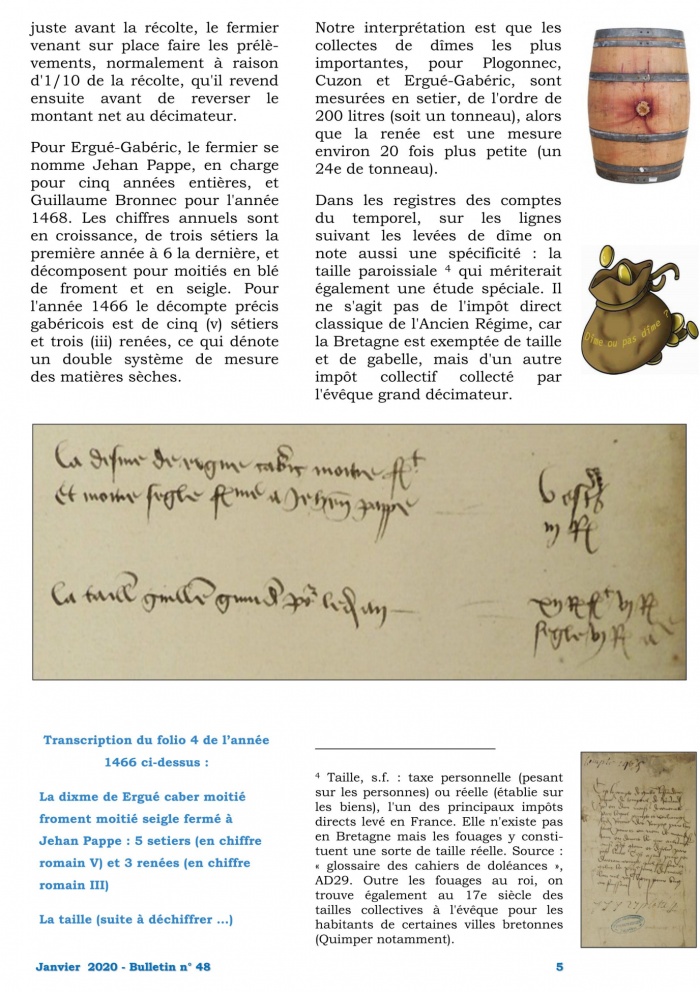 juste avant la récolte, le fermier
venant sur place faire les prélè-
vements, normalement à raison
d'1/10 de la récolte, qu'il revend
ensuite avant de reverser le
montant net au décimateur.
Pour Ergué-Gabéric, le fermier se
nomme Jehan Pappe, en charge
pour cinq années entières, et
Guillaume Bronnec pour l'année
1468. Les chiffres annuels sont
en croissance, de trois sétiers la
première année à 6 la dernière, et
décomposent pour moitiés en blé
de froment et en seigle. Pour
l'année 1466 le décompte précis
gabéricois est de cinq (v) sétiers
et trois (iii) renées, ce qui dénote
un double système de mesure
des matières sèches.
Notre interprétation est que les
collectes de dîmes les plus
importantes, pour Plogonnec,
Cuzon et Ergué-Gabéric, sont
mesurées en setier, de l'ordre de
200 litres (soit un tonneau), alors
que la renée est une mesure
environ 20 fois plus petite (un
24e de tonneau).
Dans les registres des comptes
du temporel, sur les lignes
suivant les levées de dîme on
note aussi une spécificité : la
taille paroissiale ⁴ qui mériterait
également une étude spéciale. Il
ne s'agit pas de l'impôt direct
classique de l'Ancien Régime, car
la Bretagne est exemptée de taille
et de gabelle, mais d'un autre
impôt collectif collecté par
l'évêque grand décimateur.
Dîme ou pas dîme ?
La disme de
et moitie segle a Jehan pappe
La taill
segle
Transcription du folio 4 de l'année
1466 ci-dessus :
La dixme de Ergué caber moitié
froment moitié seigle fermé à
Jehan Pappe : 5 setiers (en chiffre
romain V) et 3 renées (en chiffre
romain III)
La taille (suite à déchiffrer ...)
⁴ Taille, s.f. : taxe personnelle (pesant
sur les personnes) ou réelle (établie sur
les biens), l'un des principaux impôts
directs levé en France. Elle n'existe pas
en Bretagne mais les fouages y consti-
tuent une sorte de taille réelle. Source :
« glossaire des cahiers de doléances »,
AD29. Outre les fouages au roi, on
trouve également au 17e siècle des
tailles collectives à l'évêque pour les
habitants de certaines villes bretonnes
(Quimper notamment).
Janvier 2020 - Bulletin n° 48
5